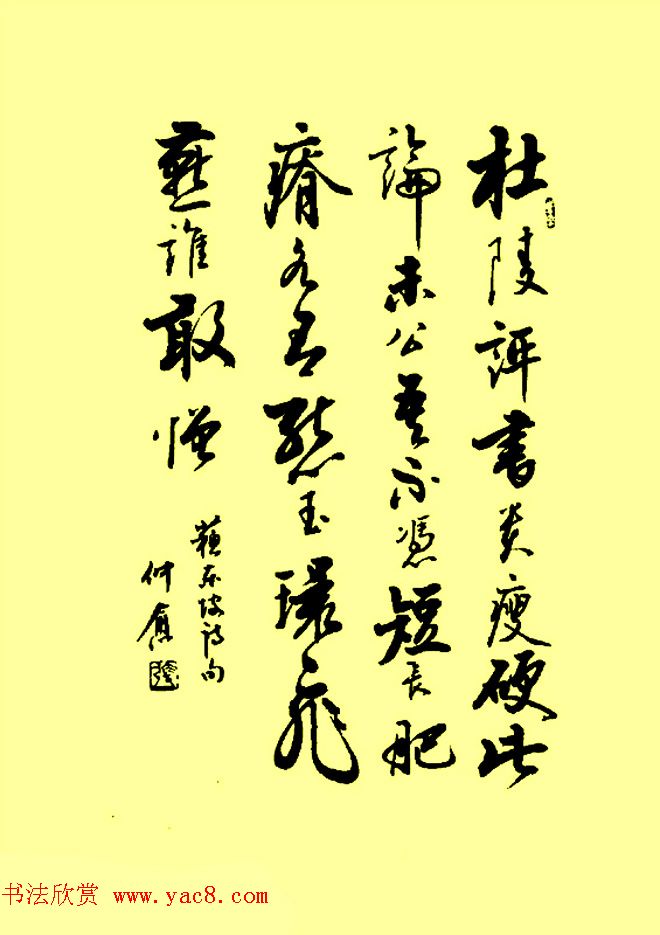 杜陵評書貴瘦硬此
論未公吾不憑短長肥
瘠各有態玉環飛
燕誰敢憎
蘇东坡詩句
仲廬
书法欣赏 www.yac8.com